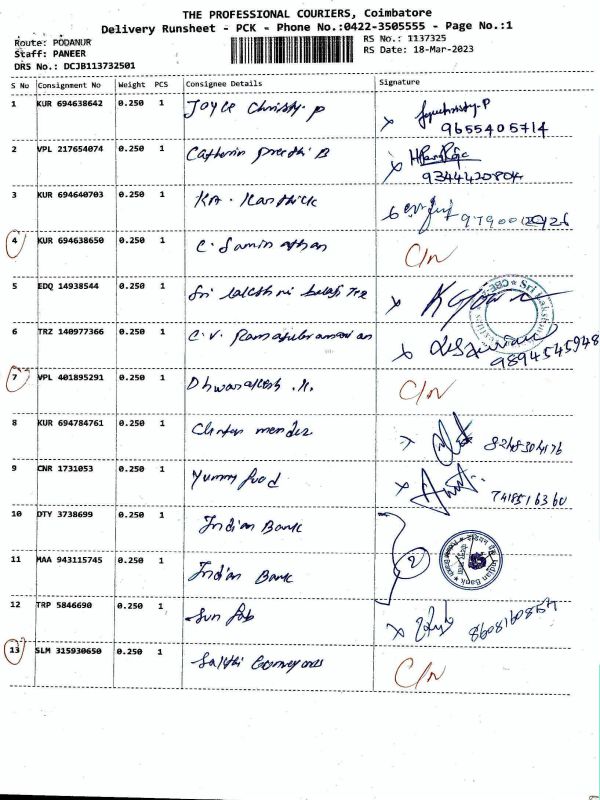 THE PROFESSIONAL COURIERS, Coimbatore
Delivery Runsheet - PCK - Phone No.:0422-3505555 - Page No.:1
Route: PODANUR
RS No.: 1137325
Staff: PANEER
RS Date: 18-Mar-2023
DRS No.: DCJB113732501
S No Consignment No Weight PCS Consignee Details Signature
1 KUR 694638642 0.250 1 Joyce Christy. P
9655405714
2 VPL 217654074 0.250 1 Catherin preethi B
3 KUR 694640703 0.250 1 Karthick
4 KUR 694638650 0.250 1 C. Saminathan C/N
5 EDQ 14938544 0.250 1 Sri
6 TRZ 140977366 0.250 1 C. V.
9894545948
7 VPL 401895291 0.250 1 C/N
8 KUR 694784761 0.250 1 mendez
9 CNR 1731053 0.250 1 Yummy food
10 DTY 3738699 0.250 1 Indian Bank
11 MAA 943115745 0.250 1 Indian Bank 2 Indian Bank
12 TRP 5846690 0.250 1 Sun
13 SLM 315930650 0.250 1 Sakthi C/N